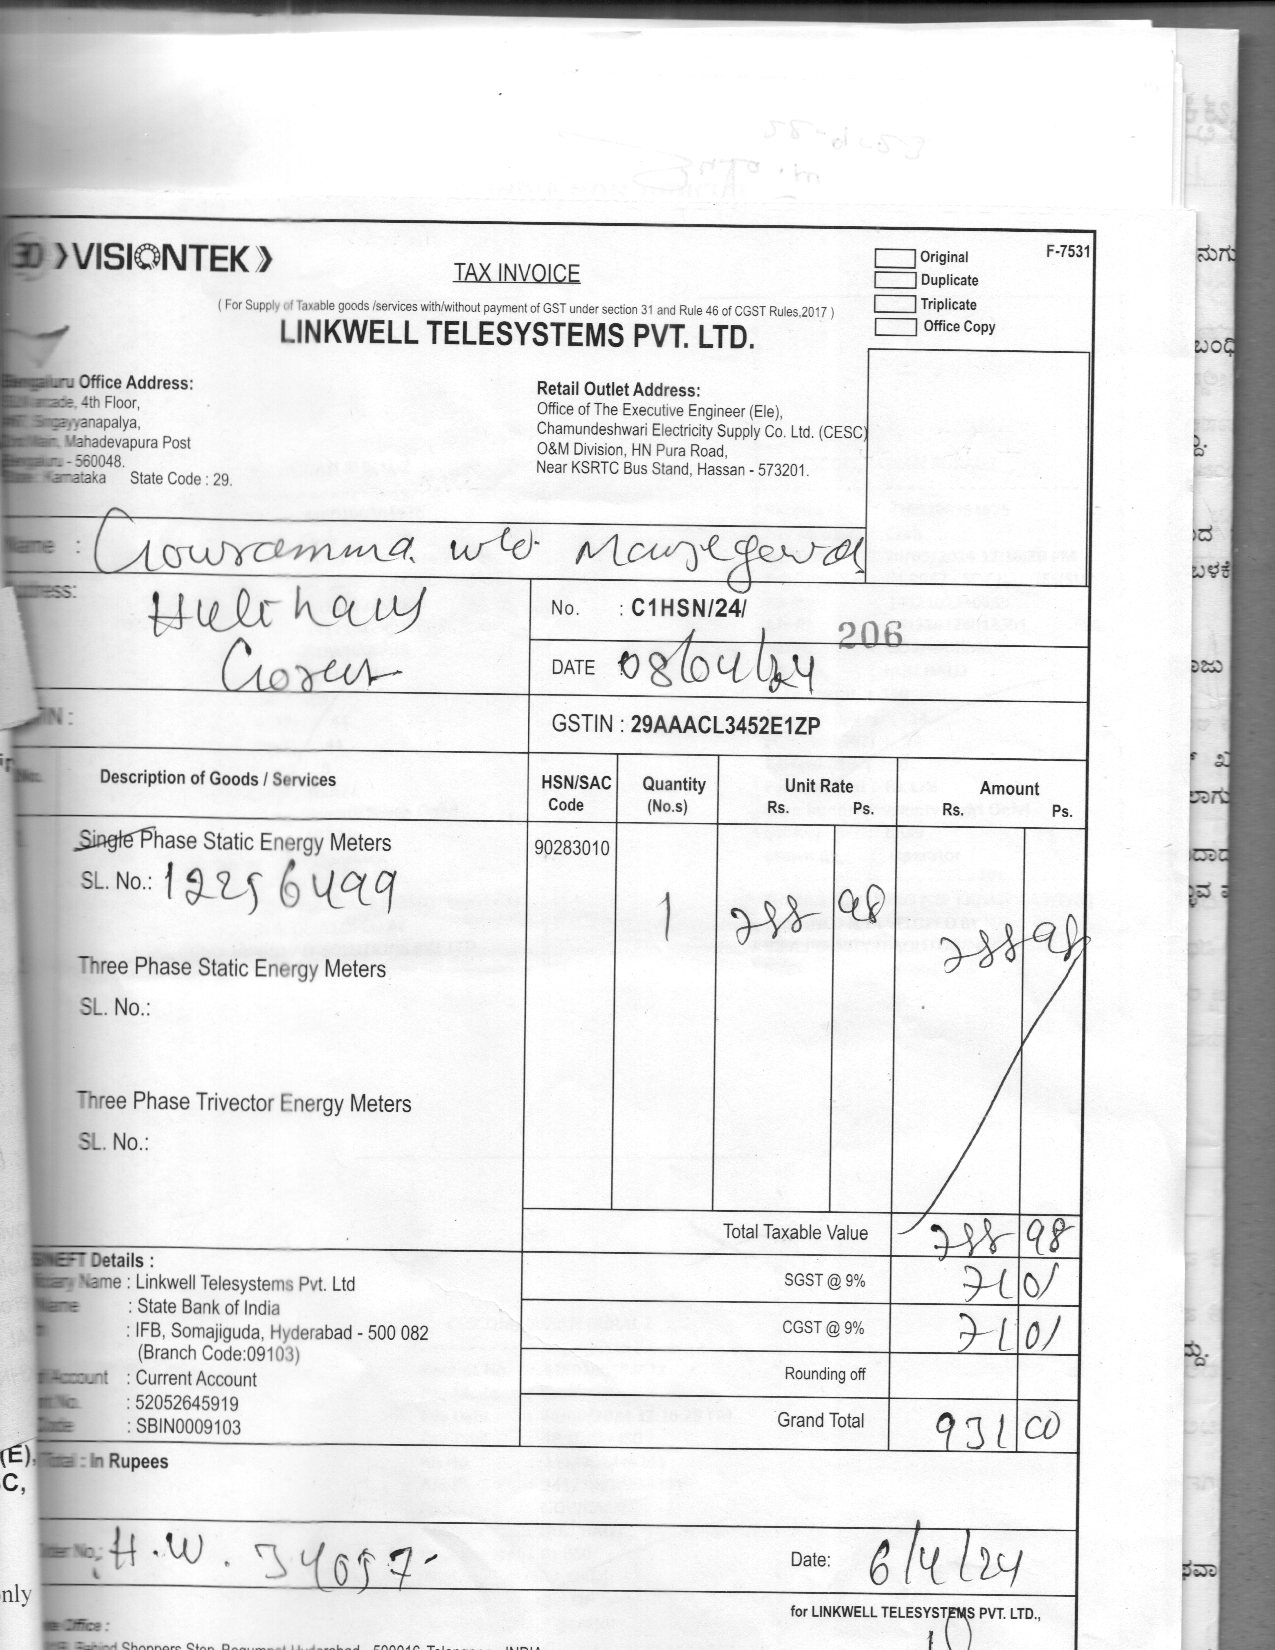 VISIONTEK
TAX INVOICE
Original
F-7531
Duplicate
Triplicate
Office Copy
( For Supply of Taxable goods /services with/without payment of GST under section 31 and Rule 46 of CGST Rules,2017 )
LINKWELL TELESYSTEMS PVT. LTD.
Bengaluru Office Address:
4th Floor,
Singayyanapalya,
Mahadevapura Post
Bengaluru - 560048.
State: Karnataka State Code : 29.
Retail Outlet Address:
Office of The Executive Engineer (Ele),
Chamundeshwari Electricity Supply Co. Ltd. (CESC)
O&M Division, HN Pura Road,
Near KSRTC Bus Stand, Hassan - 573201.
Name : Gowramma w/o
Address:
No. : C1HSN/24/ 206
DATE 08/04/24
GSTIN : 29AAACL3452E1ZP
Description of Goods / Services
HSN/SAC Code
Quantity (No.s)
Unit Rate Rs. Ps.
Amount Rs. Ps.
Single Phase Static Energy Meters 90283010
SL. No.: 12256499 1 788 98 788 98
Three Phase Static Energy Meters
SL. No.:
Three Phase Trivector Energy Meters
SL. No.:
Total Taxable Value 788 98
SGST @ 9% 71 01
CGST @ 9% 71 01
Rounding off
Grand Total 931 00
NEFT Details :
Name : Linkwell Telesystems Pvt. Ltd
Name : State Bank of India
: IFB, Somajiguda, Hyderabad - 500 082
(Branch Code:09103)
Account : Current Account
No. : 52052645919
Code : SBIN0009103
Total : In Rupees
Order No.: H.W. 34057-
Date: 6/4/24
for LINKWELL TELESYSTEMS PVT. LTD.,
Office :
Behind Shoppers Stop, Begumpet Hyderabad - 500016, Telangana, INDIA
(E),
C,
nly